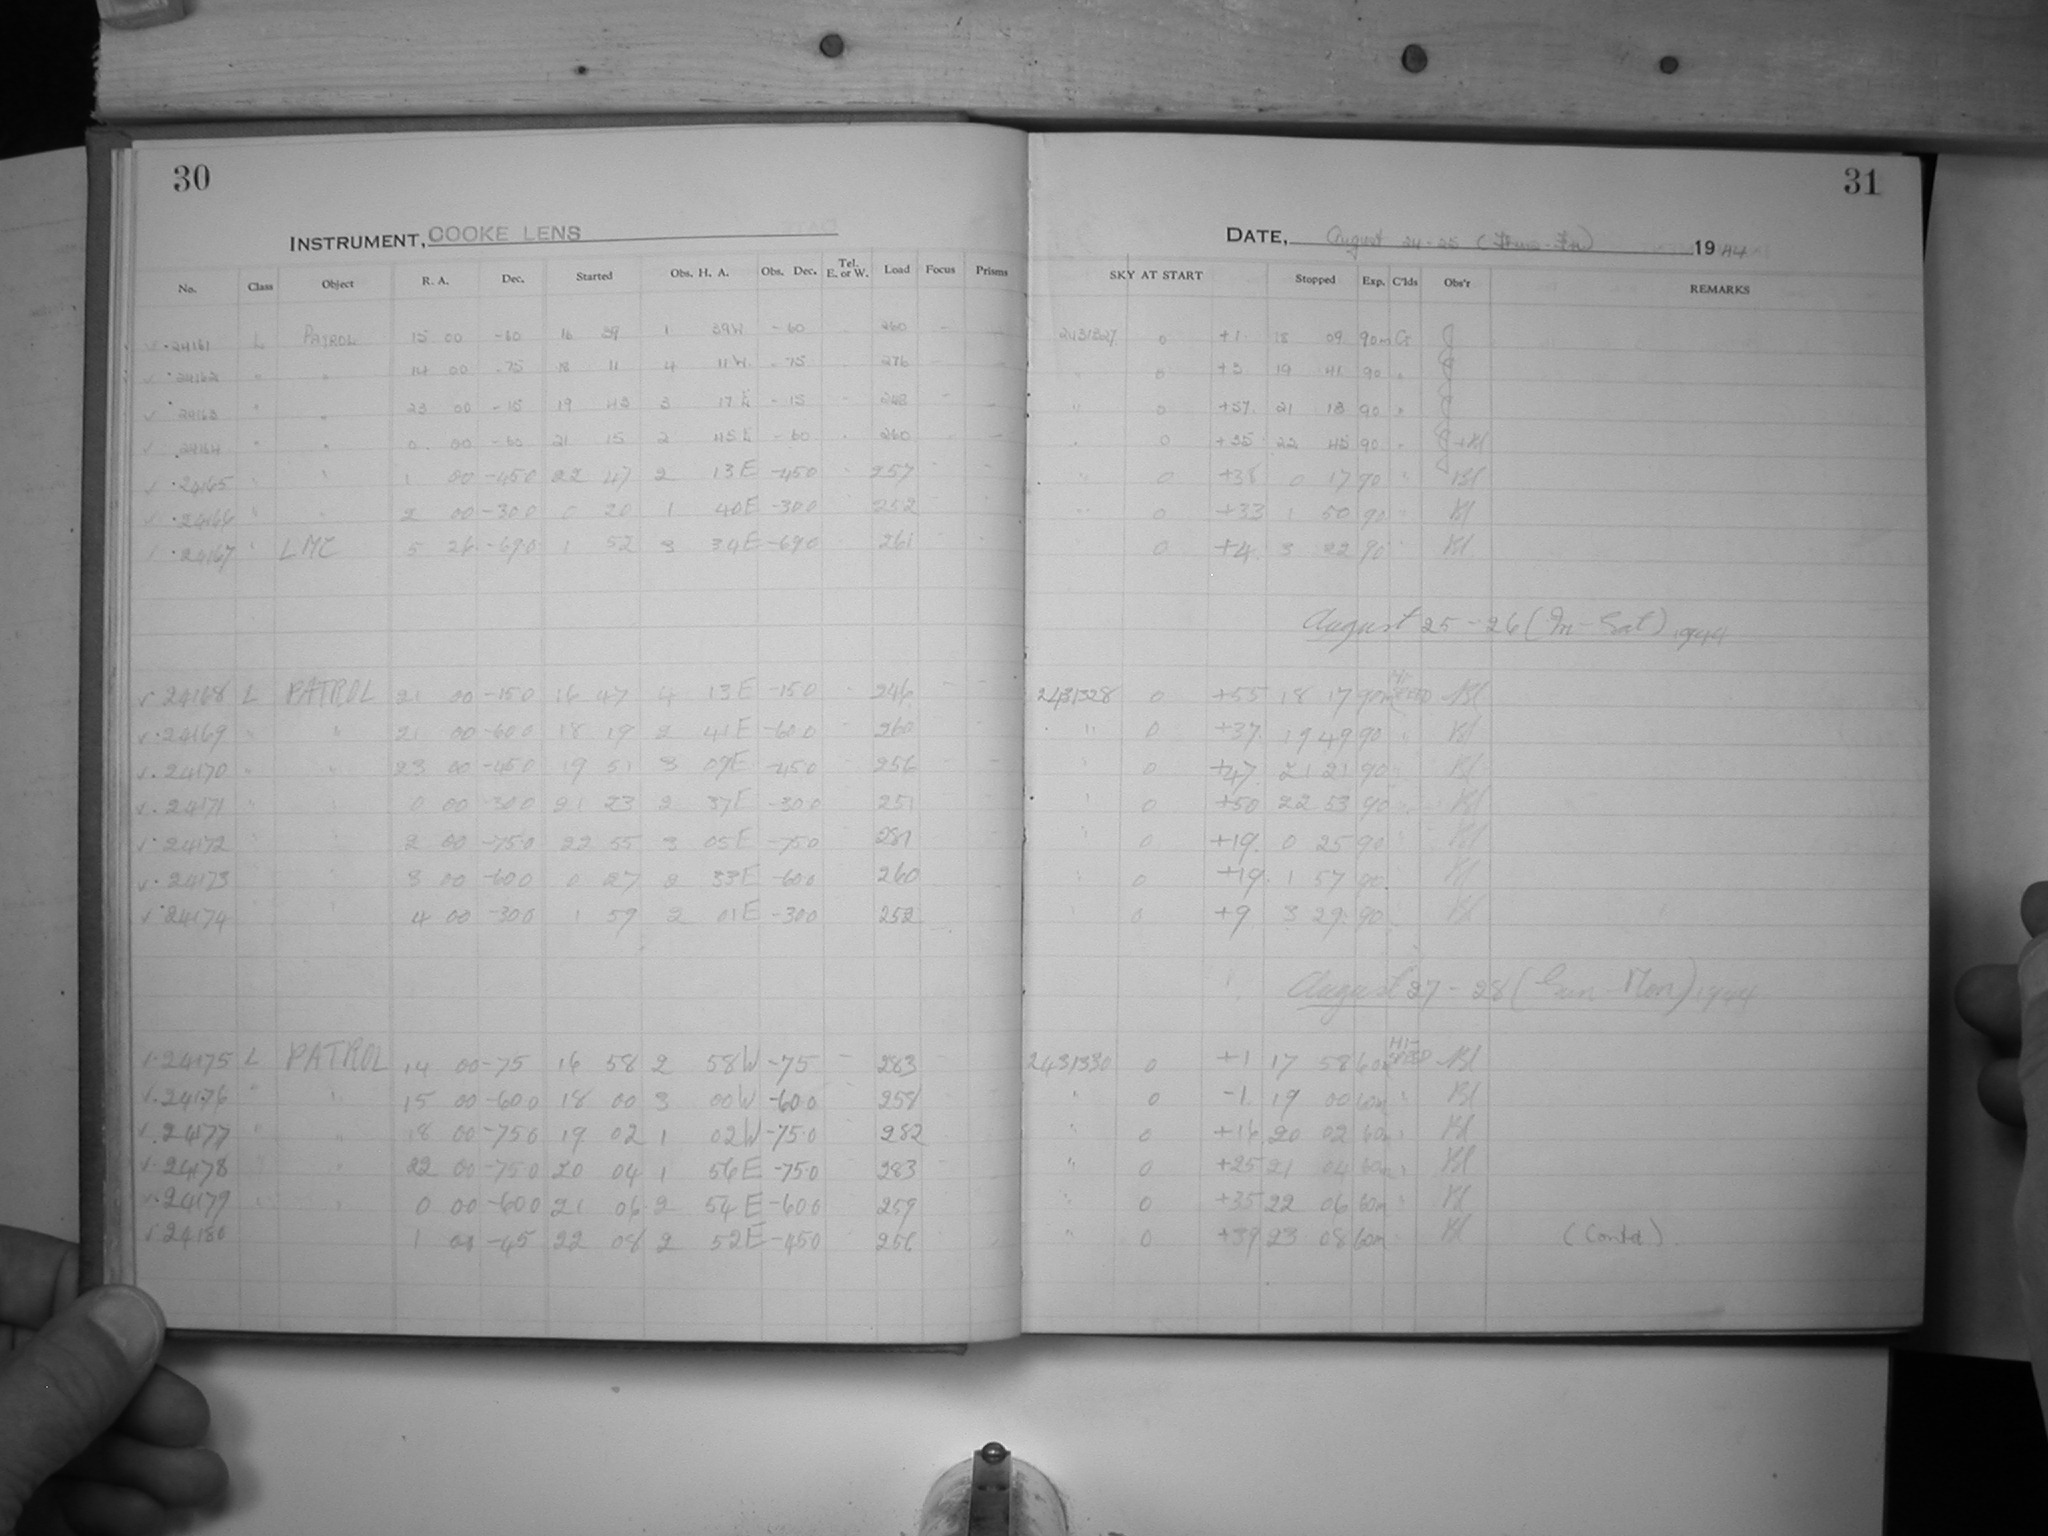 30
INSTRUMENT, COOKE LENS
No. Class Object R. A. Dec. Started Obs. H. A. Obs. Dec. Tel. E. or W. Load Focus Prisms
24161 L PATROL 15 00 -60 16 39 1 39W -60 260
24162 " " 14 00 -75 18 11 4 11W -75 276
24163 " " 23 00 -15 19 43 3 17E -15 248
24164 " " 0 00 -60 21 15 2 45E -60 260
24165 " " 1 00 -450 22 47 2 13E -450 257
24166 " " 2 00 -300 0 20 1 40E -300 252
24167 " LMC 5 26 -690 1 52 3 34E -690 261
24168 L PATROL 21 00 -150 16 47 4 13E -150 246
24169 " " 21 00 -600 18 19 2 41E -600 260
24170 " " 23 00 -450 19 51 3 09E -450 256
24171 " " 0 00 -300 21 23 2 37E -300 251
24172 " " 2 00 -750 22 55 3 05E -750 281
24173 " " 3 00 -600 0 27 2 33E -600 260
24174 " " 4 00 -300 1 59 2 01E -300 252
24175 L PATROL 14 00 -75 16 58 2 58W -75 283
24176 " " 15 00 -600 18 00 3 00W -600 258
24177 " " 18 00 -750 19 02 1 02W -750 282
24178 " " 22 00 -750 20 04 1 56E -750 283
24179 " " 0 00 -600 21 06 2 54E -600 259
24180 1 00 -45 22 08 2 52E -450 256
31
DATE, August 24-25 (Thurs-Fri) 1944
SKY AT START Stopped Exp. C'lds Obs'r REMARKS
2431327 0 +1 18 09 90m J
" 0 +3 19 41 90 " J
" 0 +57 21 13 90 " J
" 0 +35 22 45 90 " J+Bl
" 0 +38 0 17 90 " Bl
" 0 +33 1 50 90 " Bl
0 +4 3 22 90 " Bl
August 25-26 (Fri-Sat) 1944
2431328 0 +55 18 17 90m HI-SPEED Bl
" 0 +37 19 49 90 " Bl
" 0 +47 21 21 90 Bl
" 0 +50 22 53 90 Bl
" 0 +19 0 25 90 Bl
" 0 +19 1 57 90 Bl
" 0 +9 3 29 90 Bl
August 27-28 (Sun-Mon) 1944
2431330 0 +1 17 58 60m HI-SPEED Bl
" 0 -1 19 00 60m " Bl
" 0 +16 20 02 60m " Bl
" 0 +25 21 04 60m " Bl
" 0 +35 22 06 60m " Bl
" 0 +39 23 08 60m Bl (Contd)